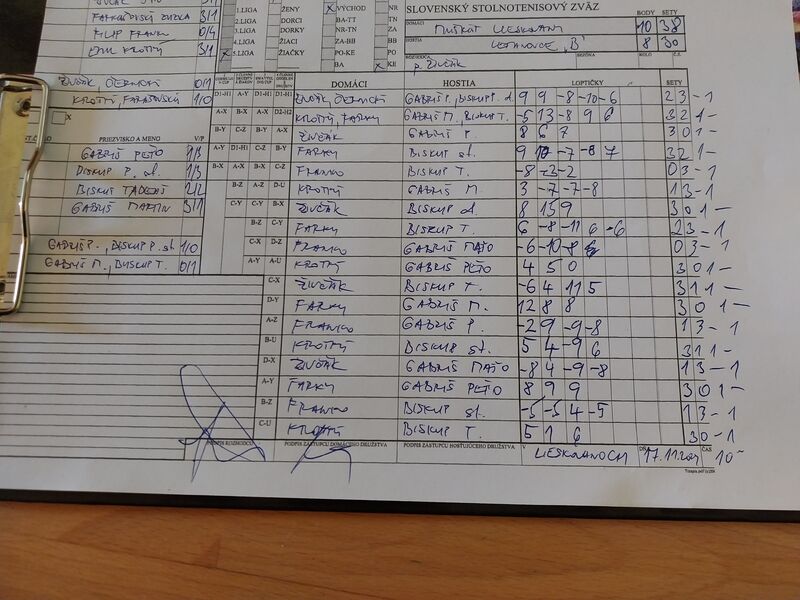 SLOVENSKÝ STOLNOTENISOVÝ ZVÄZ
1.LIGA ŽENY VÝCHOD NR
2.LIGA DORCI BA-TT TN
3.LIGA DORKY NR-TN ZA
4.LIGA ŽIACI ZA-BB BB
5.LIGA ŽIAČKY PO-KE PO
BA x KE
DOMÁCI MUŠKÁT LIESKOVANY BODY SETY 10 38
HOSTIA LETANOVCE "B" 8 30
ROZHODCA p. ŽIVČÁK
FARKAŠOVSKÝ 3/1
FILIP FRANKO 0/4
KROTKÝ 3/1
ŽIVČÁK, ČERNICKÝ 0/1
KROTKÝ, FARKAŠOVSKÝ 1/0
PRIEZVISKO A MENO V/P
GABRIŠ PEŤO 1/3
BISKUP P. st. 1/3
BISKUP TADEÁŠ 2/2
GABRIŠ MARTIN 3/1
GABRIŠ P., BISKUP P. st. 1/0
GABRIŠ M., BISKUP T. 0/1
DOMÁCI HOSTIA LOPTIČKY SETY
D1-H1 A-Y D1-H1 D1-H1 ŽIVČÁK, ČERNICKÝ GABRIŠ P., BISKUP P. st. 9 9 -8 -10 -6 2 3 -1
A-X B-X A-X D2-H2 KROTKÝ, FARKY GABRIŠ M., BISKUP T. -5 13 -8 9 6 3 2 1 -
B-Y C-Z B-Y A-X ŽIVČÁK GABRIŠ P. 8 6 7 3 0 1 -
A-Y D1-H1 C-Z B-Y FARKY BISKUP st. 9 10 -7 -8 7 3 2 1 -
B-X A-X B-X C-Z FRANKO BISKUP T. -8 -3 -2 0 3 -1
B-Z A-Z D-U KROTKÝ GABRIŠ M. 3 -7 -7 -8 1 3 -1
C-Y C-Y B-X ŽIVČÁK BISKUP st. 8 15 9 3 0 1 -
B-Z C-Y FARKY BISKUP T. 6 -8 -11 6 -6 2 3 -1
C-X D-Z FRANKO GABRIŠ MAŤO -6 -10 -8 0 3 -1
A-Y A-U KROTKÝ GABRIŠ PEŤO 4 5 0 3 0 1 -
C-X ŽIVČÁK BISKUP T. -6 4 11 5 3 1 1 -
D-Y FARKY GABRIŠ M. 12 8 8 3 0 1 -
A-Z FRANKO GABRIŠ P. -2 9 -9 -8 1 3 -1
B-U KROTKÝ BISKUP st. 5 4 -9 6 3 1 1 -
D-X ŽIVČÁK GABRIŠ MAŤO -8 4 -9 -8 1 3 -1
A-Y FARKY GABRIŠ PEŤO 8 9 9 3 0 1 -
B-Z FRANKO BISKUP st. -5 -5 4 -5 1 3 -1
C-U KROTKÝ BISKUP T. 5 1 6 3 0 -1
PODPIS ROZHODCU PODPIS ZÁSTUPCU DOMÁCEHO DRUŽSTVA PODPIS ZÁSTUPCU HOSŤUJÚCEHO DRUŽSTVA V LIESKOVANOCH 17.11. ČAS 10